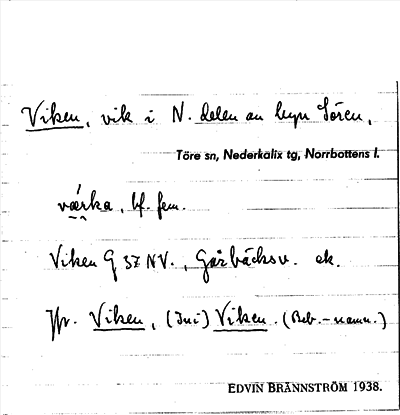 Viken, vik i N. delen av byn Sören,
Töre sn, Nederkalix tg, Norrbottens l.
bf. fem.
Viken G 37 NV., Gårbäcksv. ek.
Jfr. Viken, (Ini) Viken. (Beb.-namn.)
EDVIN BRÄNNSTRÖM 1938.